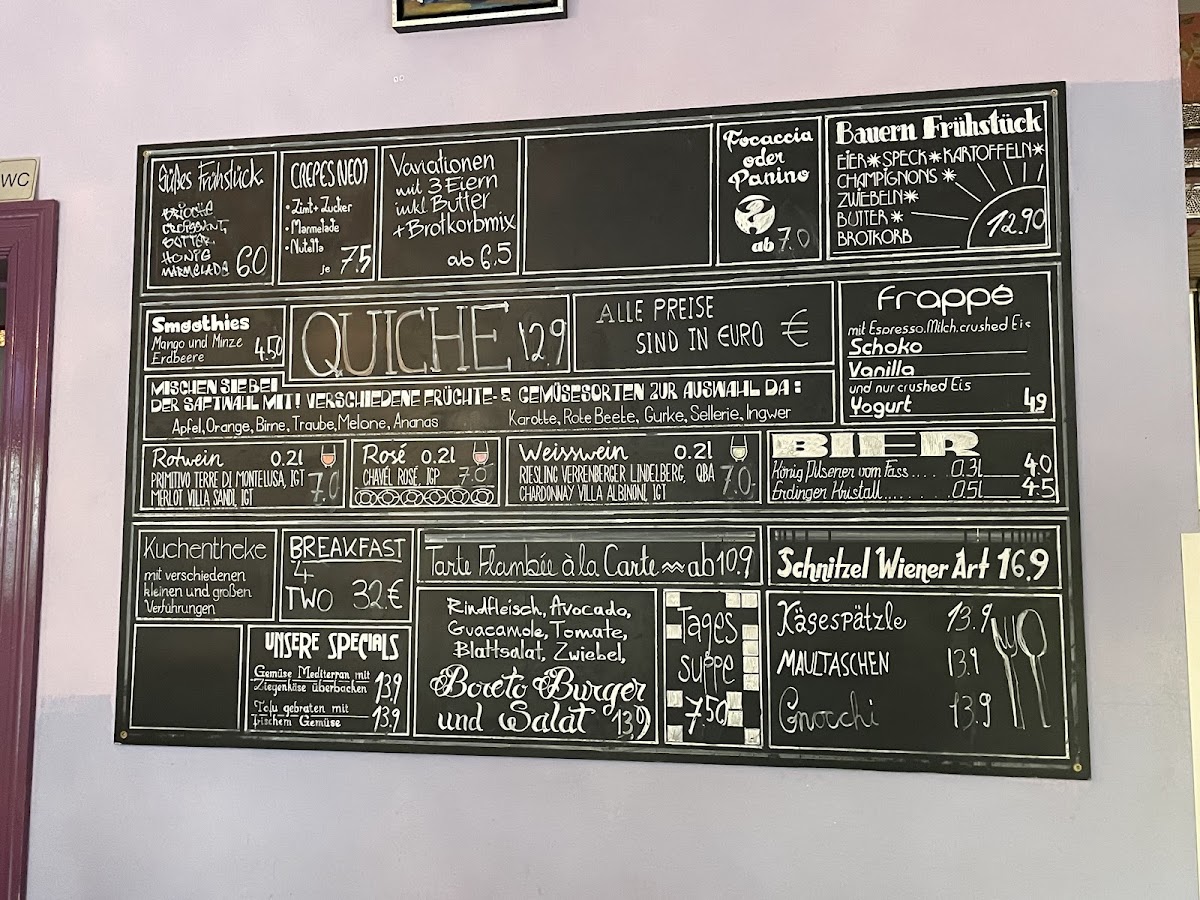 WC
Süßes Frühstück
BRIOCHE
CROISSANT
BUTTER
HONIG
MARMELADE 6.0
CREPES NEO1
• Zimt + Zucker
• Marmelade
• Nutella
je 7.5
Variationen
mit 3 Eiern
inkl. Butter
+ Brotkorbmix
ab 6.5
Focaccia
oder
Panino
ab 7.0
Bauern Frühstück
EIER * SPECK * KARTOFFELN *
CHAMPIGNONS *
ZWIEBELN *
BUTTER *
BROTKORB
12.90
Smoothies
Mango und Minze
Erdbeere 4.50
QUICHE 12.9
ALLE PREISE
SIND IN EURO €
Frappé
mit Espresso, Milch, crushed Eis
Schoko
Vanilla
und nur crushed Eis
Yogurt 4.9
MISCHEN SIE BEI
DER SAFTWAHL MIT! VERSCHIEDENE FRÜCHTE- & GEMÜSESORTEN ZUR AUSWAHL DA:
Apfel, Orange, Birne, Traube, Melone, Ananas Karotte, Rote Beete, Gurke, Sellerie, Ingwer
Rotwein 0.2l
PRIMITIVO TERRE DI MONTELUSA, IGT
MERLOT VILLA SANDI, IGT 7.0
Rosé 0.2l
CHAVEL ROSÉ, IGP 7.0
Weisswein 0.2l
RIESLING VERRENBERGER LINDELBERG, QBA
CHARDONNAY VILLA ALBINONI, IGT 7.0
BIER
König Pilsener vom Fass .... 0.3l 4.0
Erdinger Kristall ....... 0.5l 4.5
Kuchentheke
mit verschiedenen
kleinen und großen
Verführungen
BREAKFAST
4
TWO 32.€
Tarte Flambée à la Carte ~ ab 10.9
Schnitzel Wiener Art 16.9
UNSERE SPECIALS
Gemüse Mediterran mit
Ziegenkäse überbacken 13.9
Tofu gebraten mit
frischem Gemüse 13.9
Rindfleisch, Avocado,
Guacamole, Tomate,
Blattsalat, Zwiebel,
Boreto Burger
und Salat 13.9
Tages
suppe
7.50
Kägespätzle 13.9
MAULTASCHEN 13.9
Gnocchi 13.9